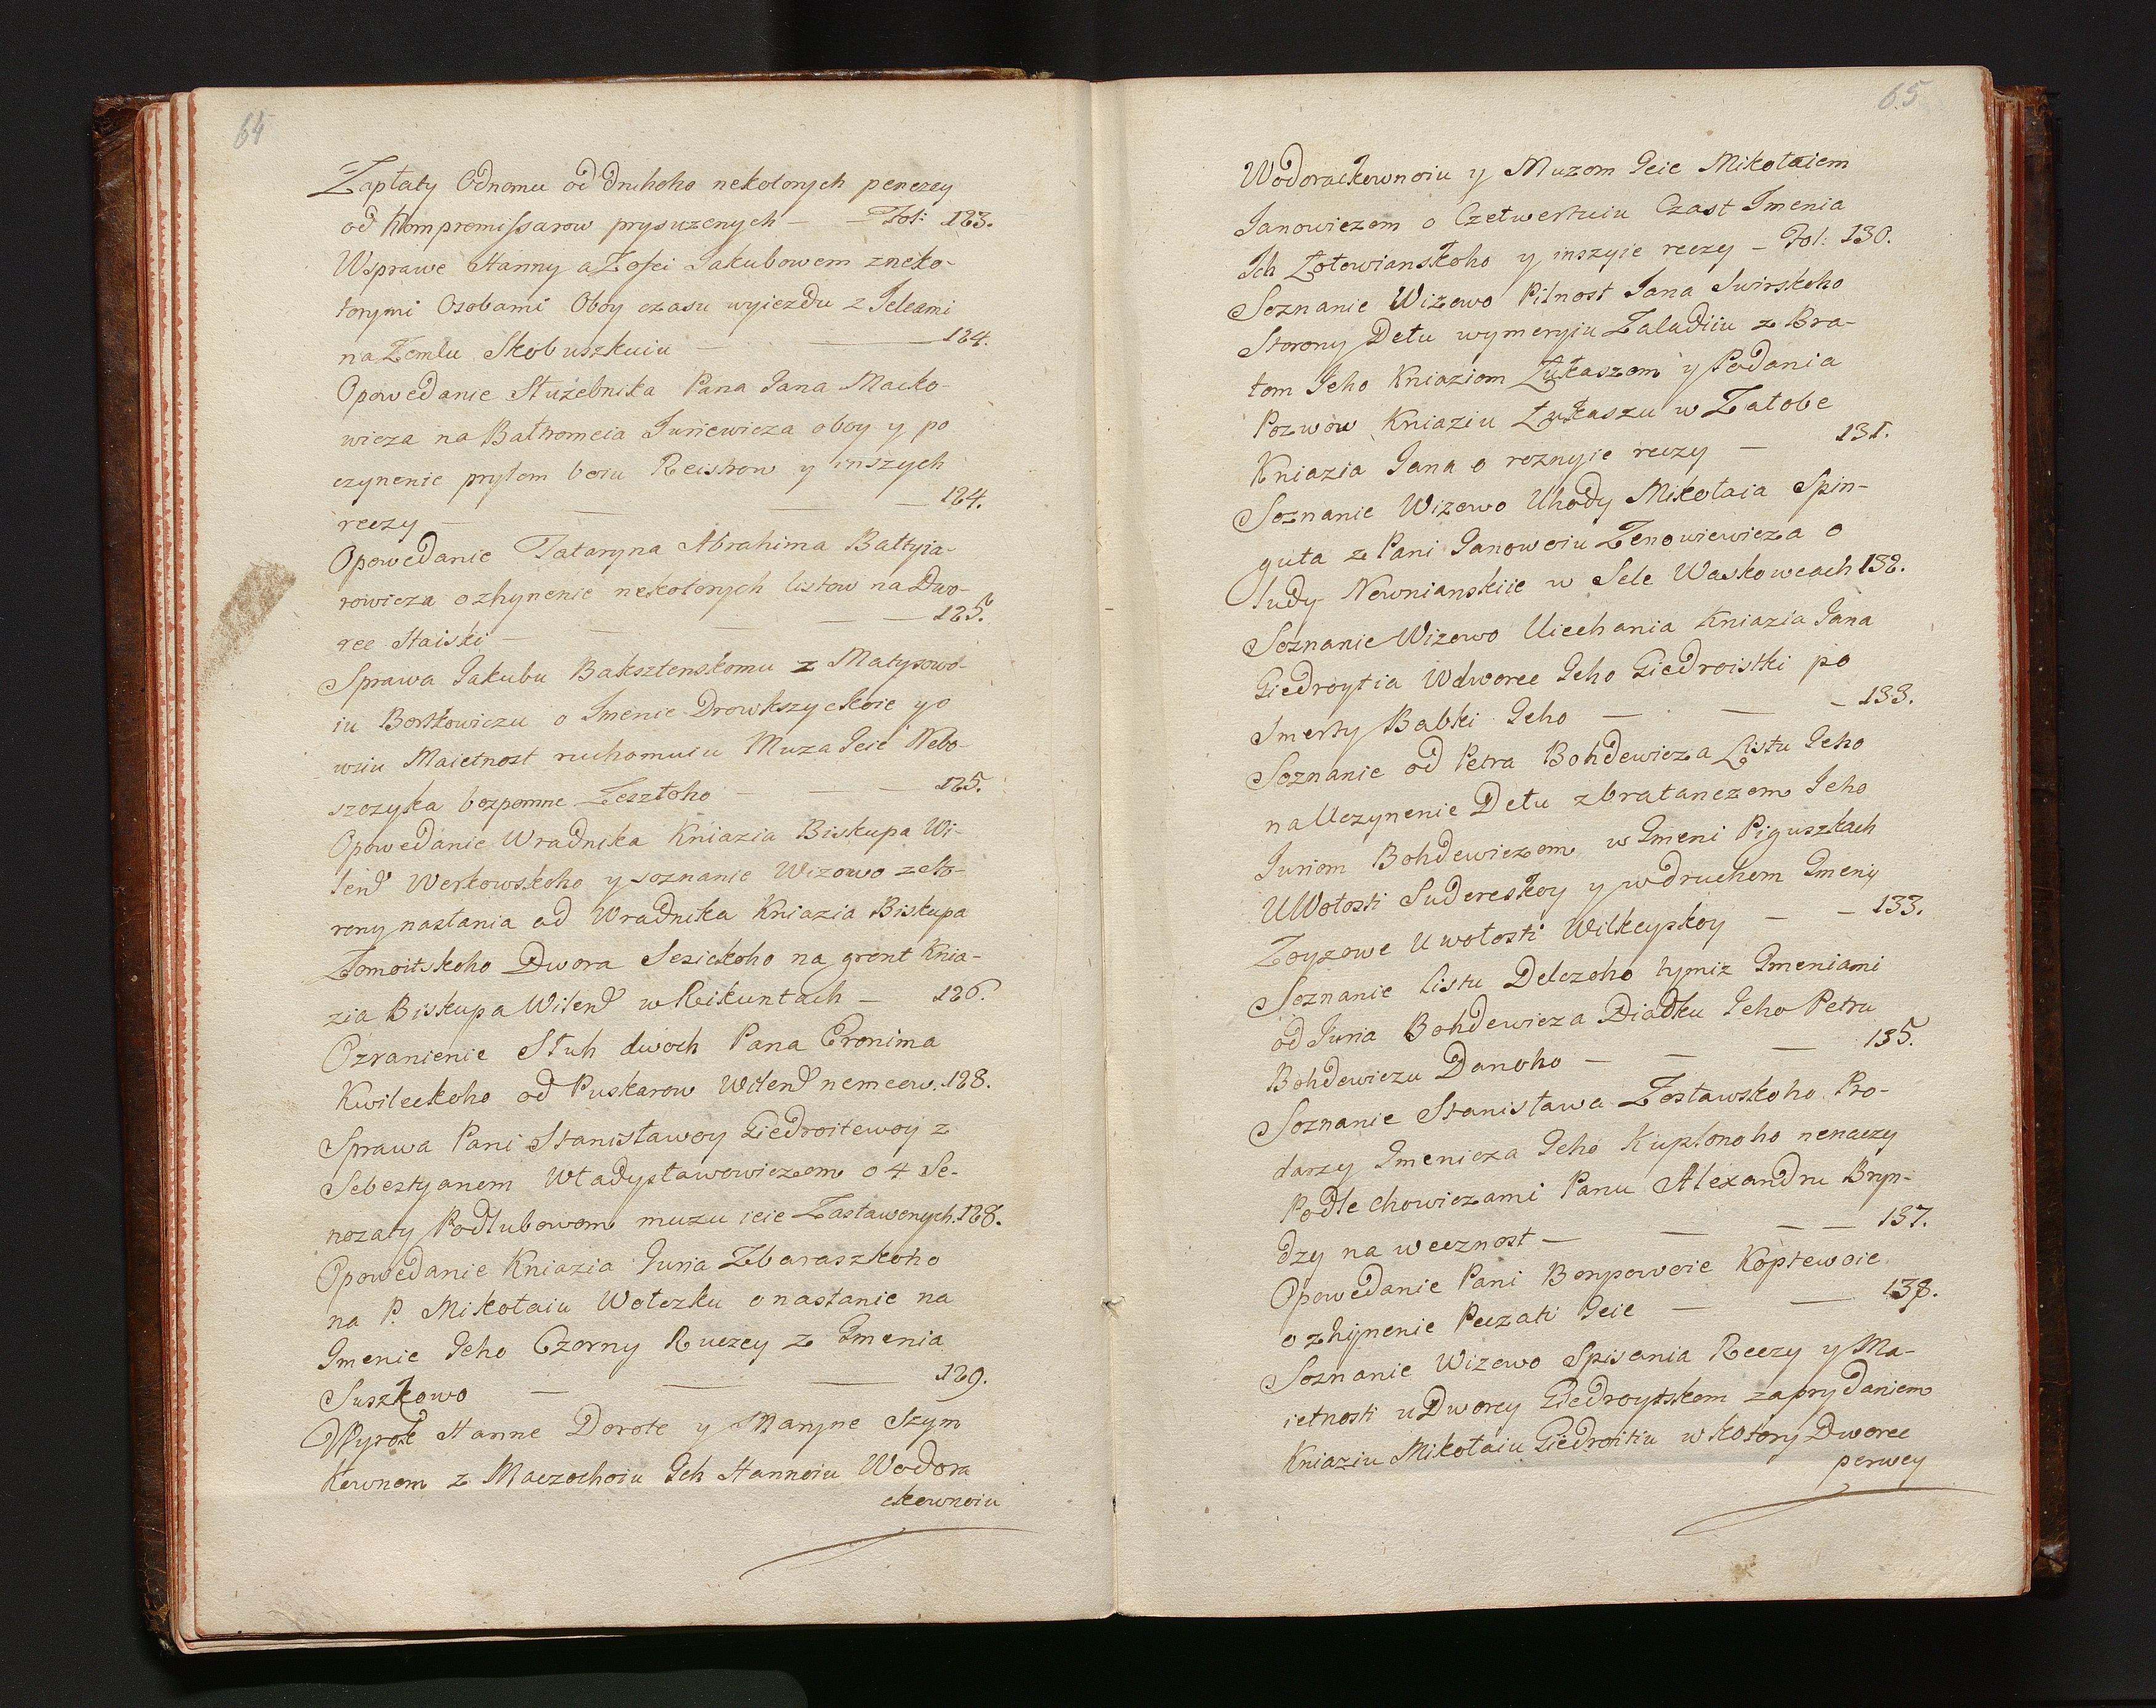 64
Zapłaty Odnomu od druhoho nekotorych penezey
od Kompromissarow prysuzenych — Fol: 123.
Wsprawe Hanny a Zofei Jakubowem zneko-
torymi Osobami Oboy czasu wyiezdu z Jeleami
na Zemlu Skobuszkuiu — — 124.
Opowedanie Służebnika Pana Jana Macko-
wicza na Bałtromeia Juriewicza oboy y po
czynenie prytom boiu Reistrow y inszych
reczy — — — — 124.
Opowedanie Tataryna Abrahima Bałtyia-
rowicza o zhynenie nekotorych listow na Dwo-
rec Staiski — — — — 125.
Sprawa Jakubu Baksztenskomu z Matysowo-
iu Borłkowiczu o Jmenie Drowkszyckoie y o
wsiu Maietnost ruchomuiu Muza Jeie Nebo-
szczyka bezpomne Zeszłoho — — — 125.
Opowedanie Wradnika Kniazia Biskupa Wi-
lend Werkowskoho y soznanie Wizowo zeto-
rony nasłania od Wradnika Kniazia Biskupa
Zomoitskoho Dwora Sesickoho na gront Knia-
zia Biskupa Wilend w Reikuntach — 126.
Ozranienie Słuh dwoch Pana Eronima
Kwileckoho od Puskarow Wilend nemcow. 128.
Sprawa Pani Stanisławoy Giedroitewoy z
Sebestyanem Władysławowiczem o 4 Se-
nozaty Podlubowom muzu ieie Zastawenych. 128.
Opowedanie Kniazia Juria Zbaraszkoho
na P. Mikołaiu Wołczku o nasłanie na
Jmenie Jeho Czorny Ruczey z Jmenia
Suszkowo — — — 129.
Wyrok Hanne Dorote y Maryne Szym
kewnom z Maczochoiu Jch Hannoiu Wodora
ckownoiu
65
Wodorackownoiu y Muzom Jeie Mikołaiem
Janowiczom o Czetwertuiu Czast Jmenia
Jch Zołowianskoho y inszyie reczy — Fol: 130.
Soznanie Wizowo Pilnost Jana Swirskoho
Storony Dełu wymeryiu Zaludiiu z Bra-
tom Jeho Kniaziom Łukaszom y Podania
Pozwow Kniaziu Łukaszu w Załobe
Kniazia Jana o roznyie reczy — 131.
Soznanie Wizowo Uhody Mikołaia Spin-
guta z Pani Janowoiu Zenowiewicza o
ludy Newnianskiie w Sele Waskowcach 132.
Soznanie Wizowo Uiechania Kniazia Jana
Giedroytia Wdworec Jeho Giedroistki po
Smerty Babki Jeho — — — 133.
Soznanie od Petra Bohdewicza Listu Jeho
na Uczynenie Dełu zbratanczom Jeho
Juriom Bohdewiczom w Jmeni Piguszkach
U Wołosti Sudereskoy y w druhom Jmeny
Zoyzowe u wołosti Wilkeyskoy — — 133.
Soznanie listu Delczoho tymiz Jmeniami
od Juria Bohdewicza Diadku Jeho Petru
Bohdewiczu Danoho — — — 135.
Soznanie Stanisława Zosławskoho Pro-
dazy Jmenicza Jeho Kuplonoho nenaczy
Podle chowiczami Panu Alexandru Bryn-
dzy na wecznost — — — — 137.
Opowedanie Pani Borysowoie Koptewoie
o zhijnenie Peczati Jeie — — 138.
Soznanie Wizowo Spisania Reczy y Ma-
ietnosti u Dworcy Giedroytskom zaprydaniem
Kniaziu Mikołaiu Giedroitiu w kotory Dworec
perwey